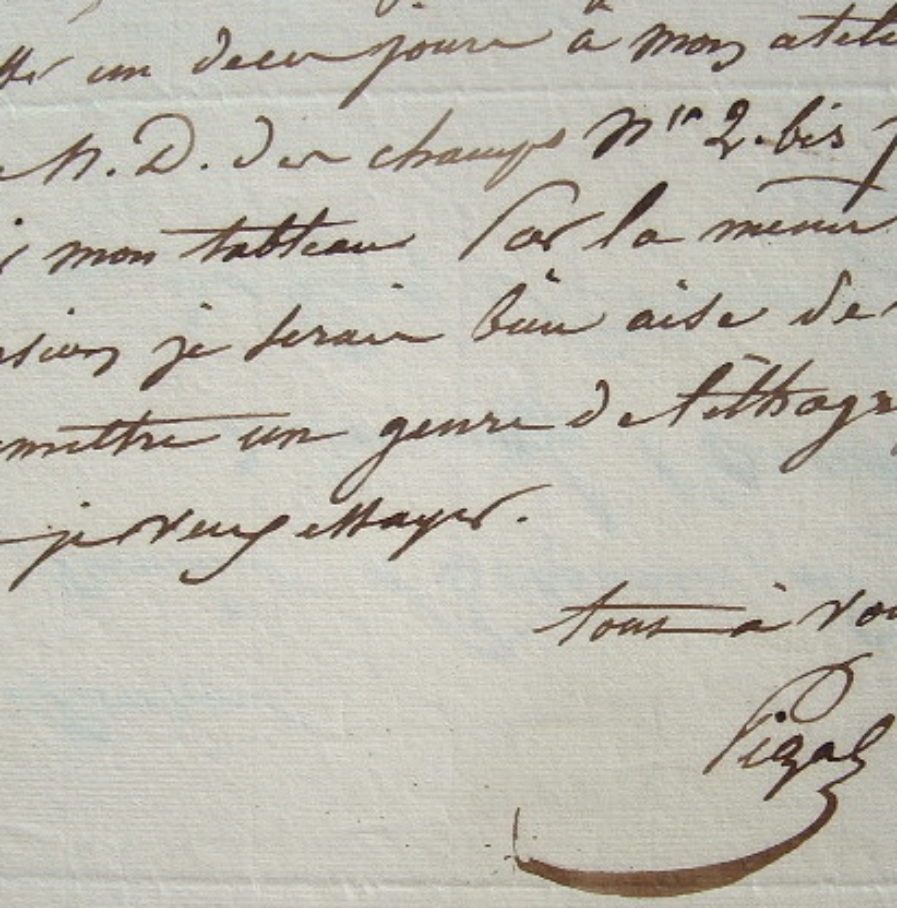 un de ces jours à mon ateli
N. D. des champs N° 2. bis
mon tableau Par la même
sion je serais bien aise de
mettre un genre de lithogr
je veux essayer.
tout à vou
Pigal